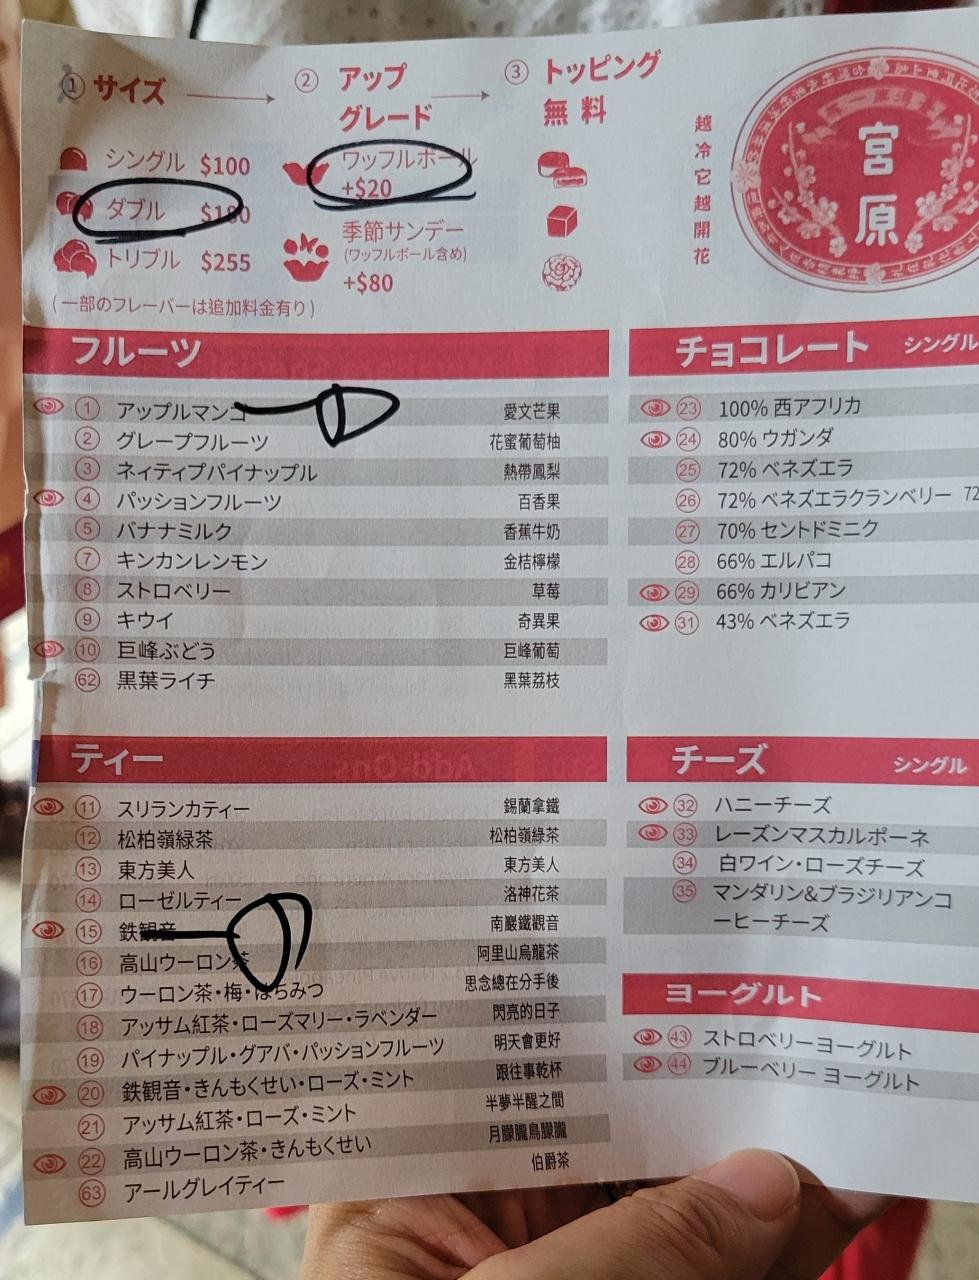 ① サイズ
② アップ
グレード
③ トッピング
無料
シングル $100
ダブル
トリプル $255
(一部のフレーバーは追加料金有り)
ワッフルボール
+$20
季節サンデー
(ワッフルボール含め)
+$80
越冷它越開花
宮原
フルーツ
① アップルマンゴ 愛文芒果
② グレープフルーツ 花蜜葡萄柚
③ ネィティブパイナップル 熱帶鳳梨
④ パッションフルーツ 百香果
⑤ バナナミルク 香蕉牛奶
⑦ キンカンレンモン 金桔檸檬
⑧ ストロベリー 草莓
⑨ キウイ 奇異果
⑩ 巨峰ぶどう 巨峰葡萄
62 黒葉ライチ 黑葉荔枝
ティー
⑪ スリランカティー 錫蘭拿鐵
⑫ 松柏嶺緑茶 松柏嶺綠茶
⑬ 東方美人 東方美人
⑭ ローゼルティー 洛神花茶
⑮ 鉄観音 南巖鐵觀音
⑯ 高山ウーロン茶 阿里山烏龍茶
⑰ ウーロン茶・梅・はちみつ 思念總在分手後
⑱ アッサム紅茶・ローズマリー・ラベンダー 閃亮的日子
⑲ パイナップル・グアバ・パッションフルーツ 明天會更好
⑳ 鉄観音・きんもくせい・ローズ・ミント 跟往事乾杯
㉑ アッサム紅茶・ローズ・ミント 半夢半醒之間
㉒ 高山ウーロン茶・きんもくせい 月朦朧鳥朦朧
63 アールグレイティー 伯爵茶
チョコレート シングル
㉓ 100% 西アフリカ
㉔ 80% ウガンダ
㉕ 72% ベネズエラ
㉖ 72% ベネズエラクランベリー 72
㉗ 70% セントドミニク
㉘ 66% エルパコ
㉙ 66% カリビアン
㉛ 43% ベネズエラ
チーズ シングル
㉜ ハニーチーズ
㉝ レーズンマスカルポーネ
㉞ 白ワイン・ローズチーズ
㉟ マンダリン&ブラジリアンコ
ーヒーチーズ
ヨーグルト
㊸ ストロベリーヨーグルト
㊹ ブルーベリー ヨーグルト